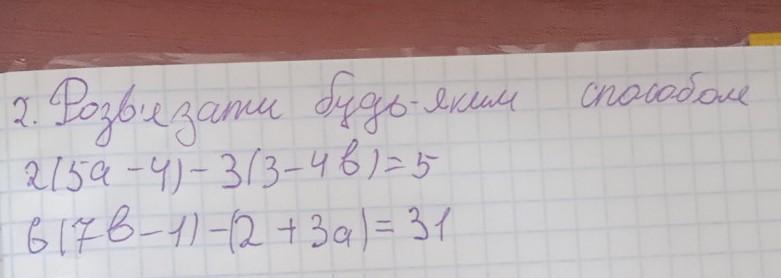 2. Розв'язати будь-яким способом
2(5a-4)-3(3-4b)=5
6(7b-1)-(2+3a)=31